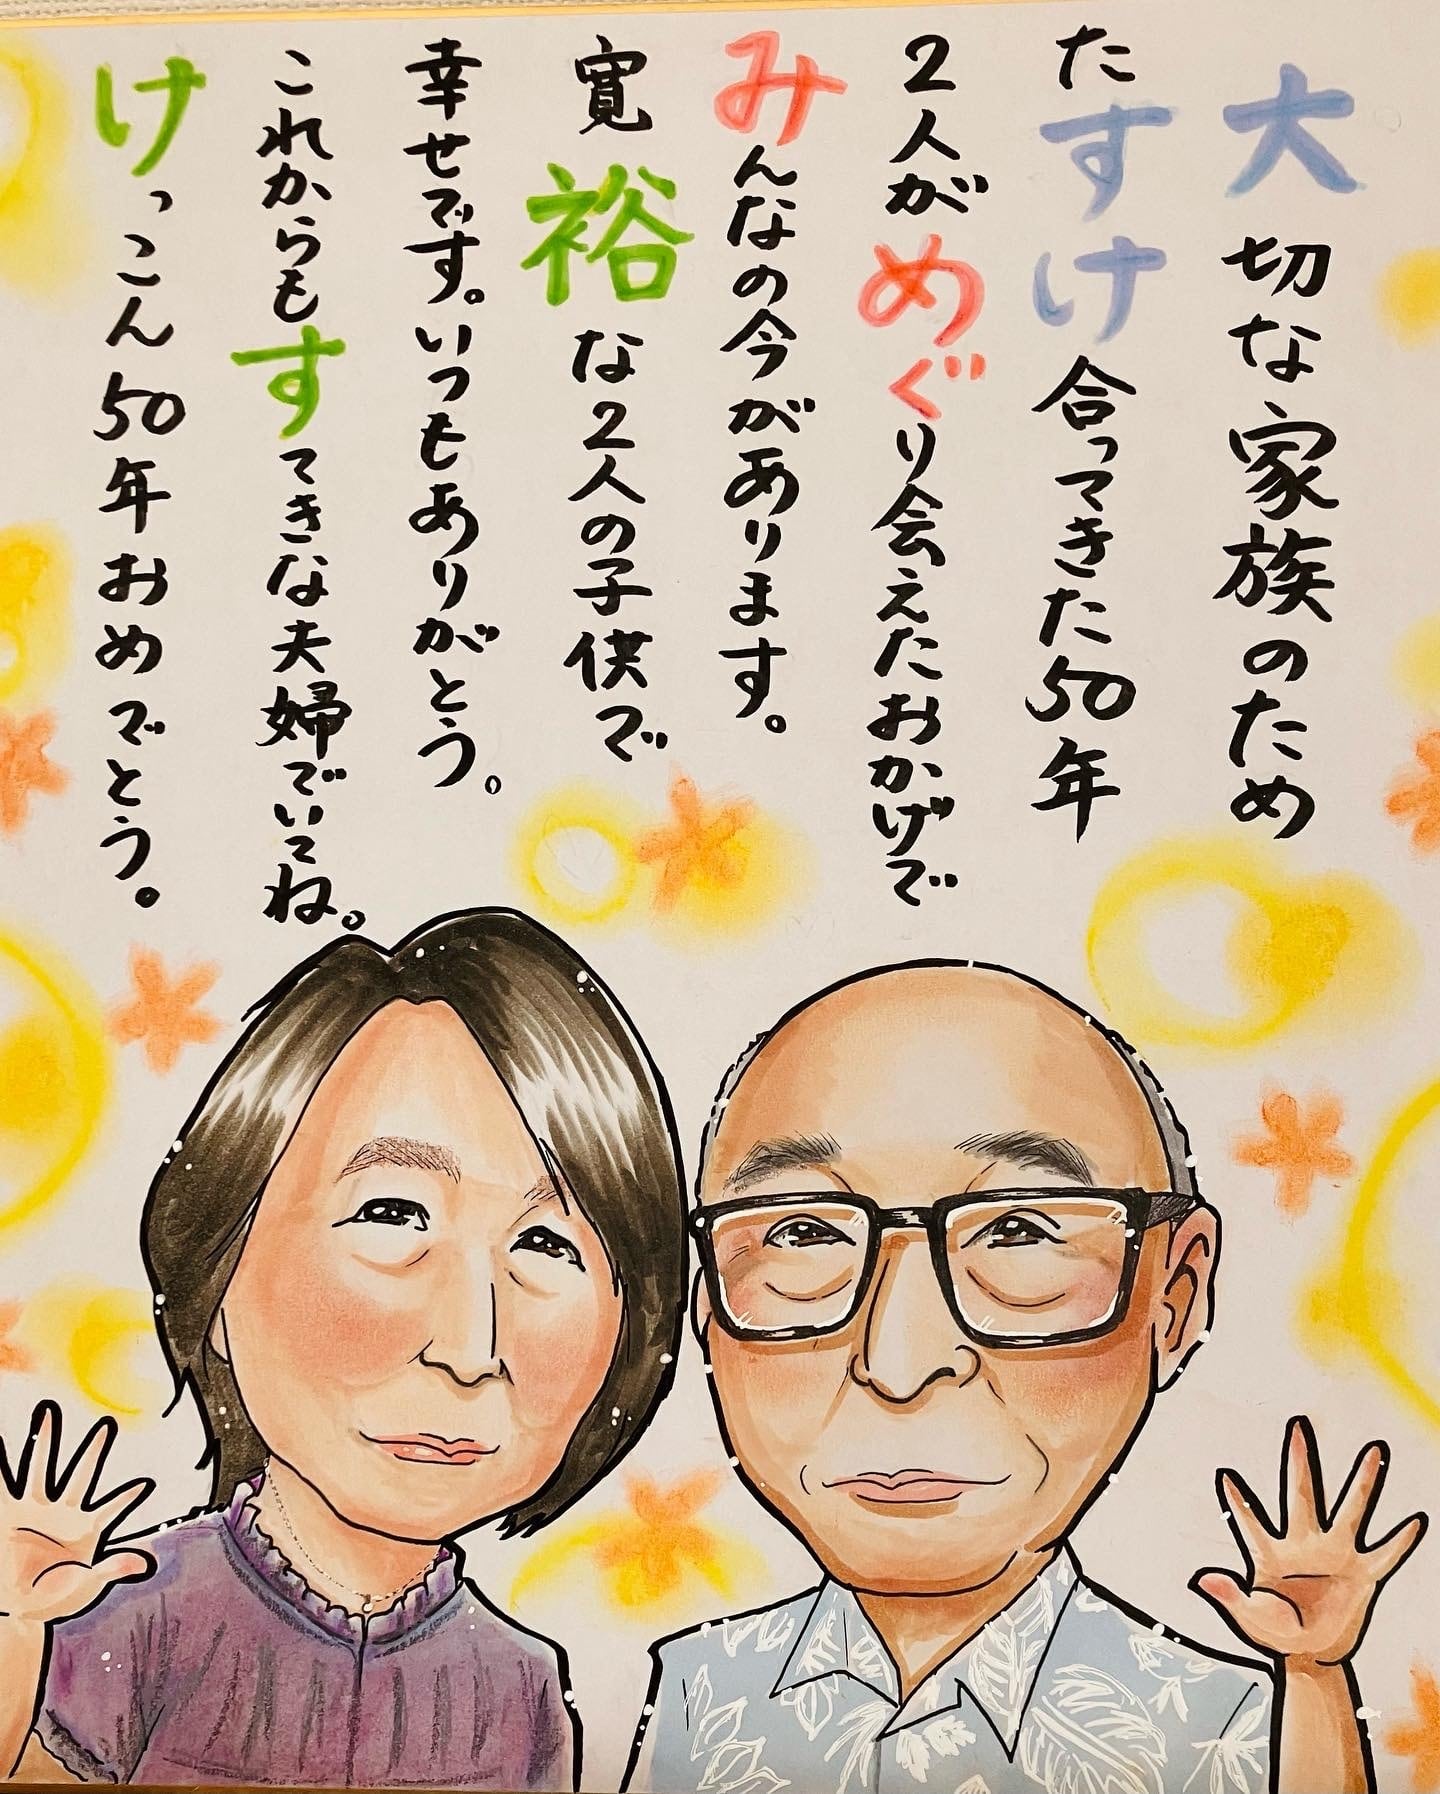 大切な家族のため
たすけ合ってきた50年
2人がめぐり会えたおかげで
みんなの今があります。
寛裕な2人の子供で
幸せです。いつもありがとう。
これからもすてきな夫婦でいてね。
けっこん50年おめでとう。